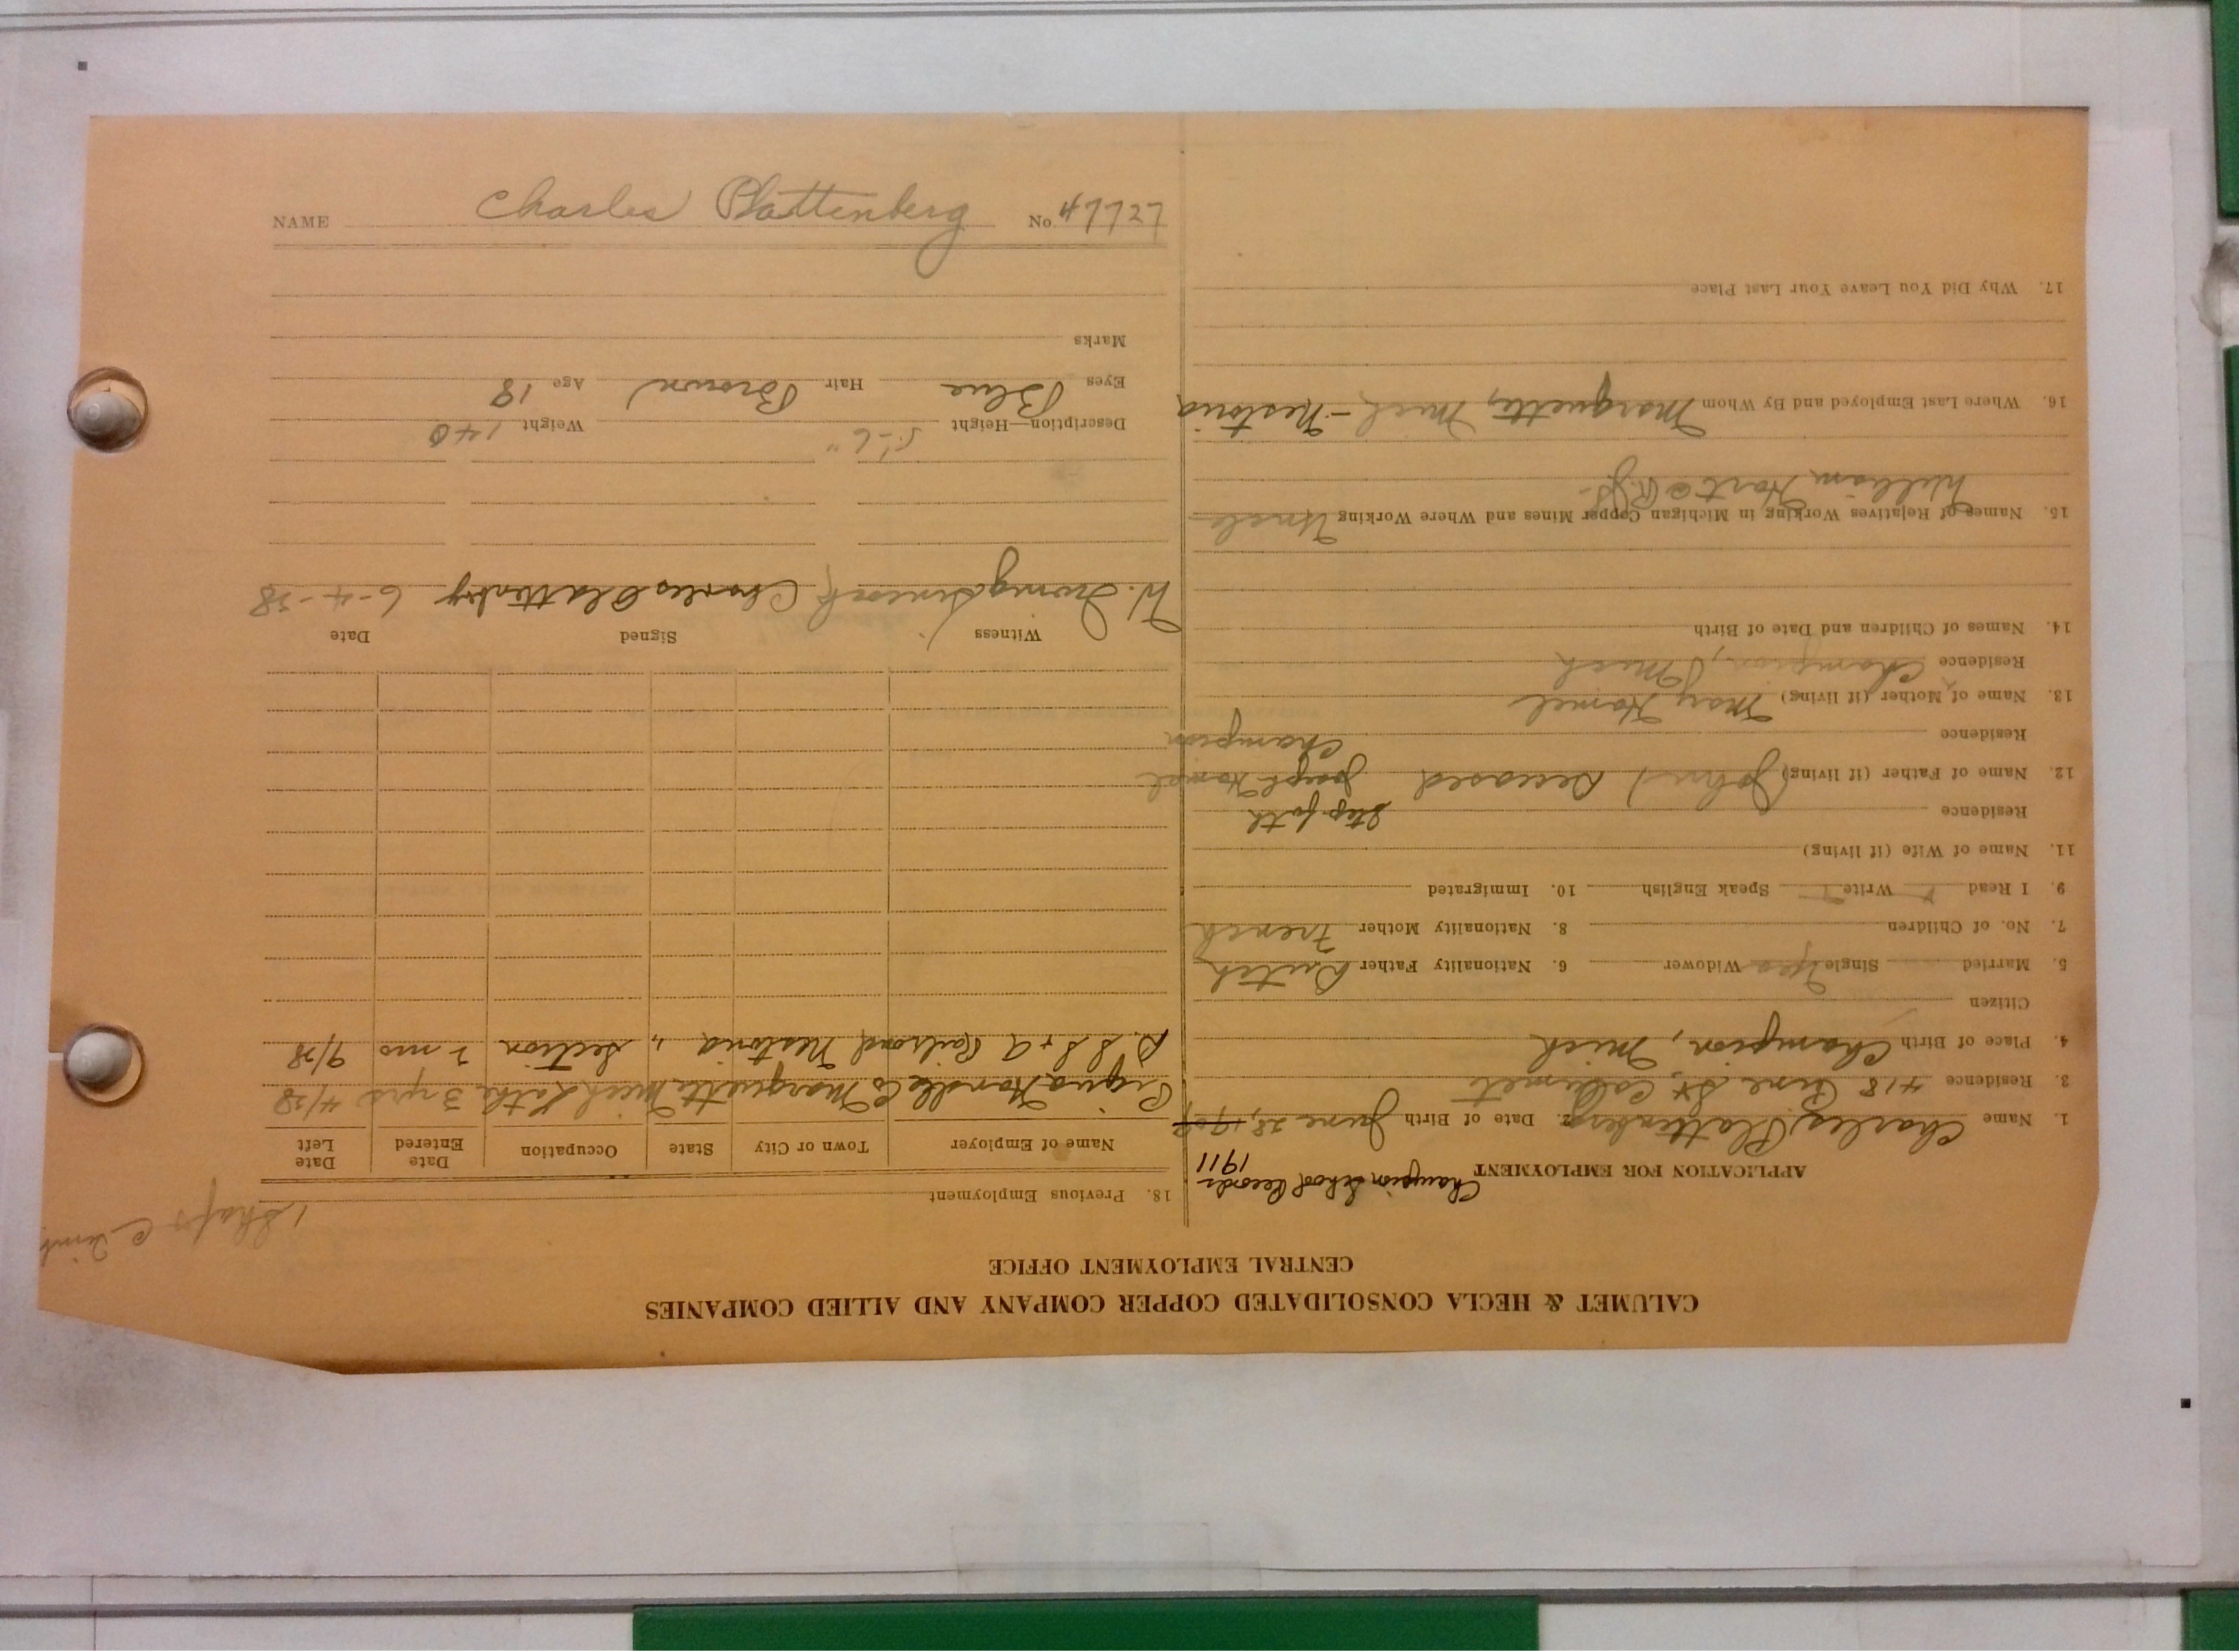 CALUMET & HECLA CONSOLIDATED COPPER COMPANY AND ALLIED COMPANIES
CENTRAL EMPLOYMENT OFFICE
APPLICATION FOR EMPLOYMENT Champion School Records 1911
1. Name Charles Plattenberg 2. Date of Birth June 28, 1909
3. Residence 418 Pine St, Calumet
4. Place of Birth Champion, Mich
Citizen
5. Married Single Yes Widower 6. Nationality Father Dutch
7. No. of Children 8. Nationality Mother French
9. I Read Write Speak English 10. Immigrated
11. Name of Wife (if living)
Residence Step-fath
12. Name of Father (if living) (John) Deceased Joseph Hamel
Residence Champion
13. Name of Mother (if living) May Hamel
Residence Champion, Mich
14. Names of Children and Date of Birth
15. Names of Relatives Working in Michigan Copper Mines and Where Working Uncle
William Hart @
16. Where Last Employed and By Whom Marquette, Mich - Nestoria
17. Why Did You Leave Your Last Place
1 Shaft C Timb
18. Previous Employment
Name of Employer Town or City State Occupation Date Entered Date Left
Piqua Handle Co Marquette Mich Lathe 3 yrs 4/38
D. S. S & A Railroad Nestoria " Section 2 mo 9/38
Witness Signed Date
W. Charles Plattenberg 6-4-38
Description—Height 5'-6" Weight 140
Eyes Blue Hair Brown Age 18
Marks
NAME Charles Plattenberg No. 47727